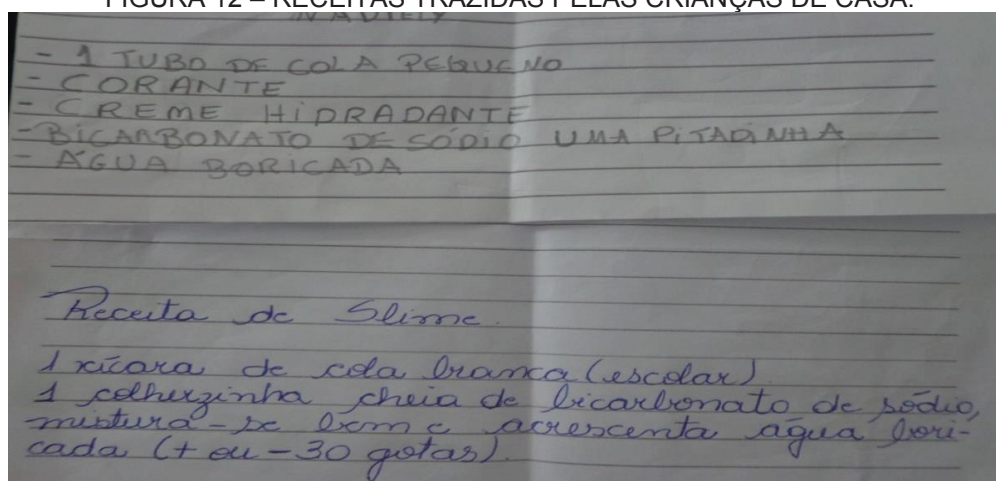 FIGURA 12 – RECEITAS TRAZIDAS PELAS CRIANÇAS DE CASA.
- 1 TUBO DE COLA PEQUENO
- CORANTE
- CREME HIDRADANTE
- BICARBONATO DE SÓDIO UMA PITADINHA
- ÁGUA BORICADA
Receita de Slime.
1 xícara de cola branca (escolar)
1 colherzinha cheia de bicarbonato de sódio,
mistura-se bem e acrescenta água bori-
cada (+ ou - 30 gotas).